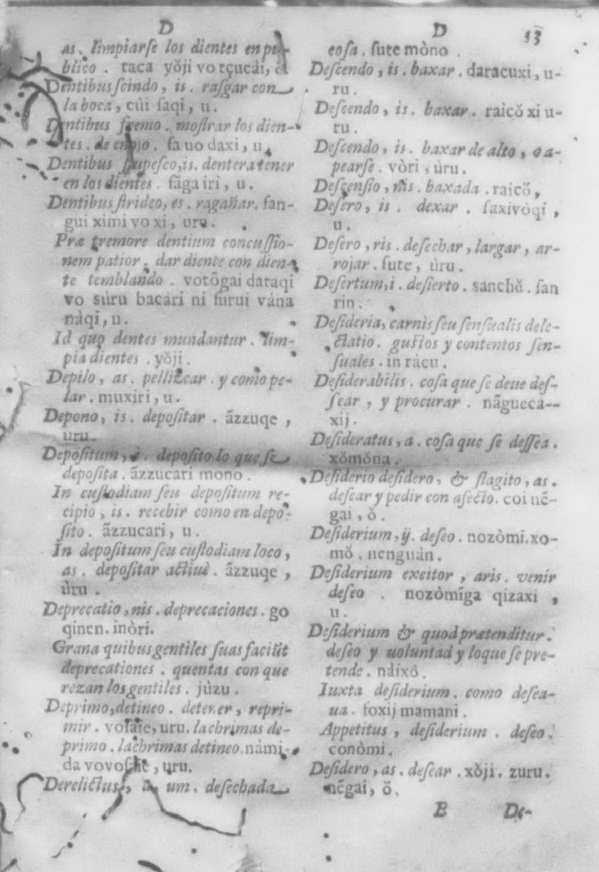 D
as. limpiarse los dientes en pu-
blico. taca yŏji vo tçucai, ŏ
Dentibus scindo, is. rasgar con
la boca, cùi saqi, u.
Dentibus fremo. mostrar los dien-
tes. de enojo. fa uo daxi, u.
Dentibus stupesco, is. dentera tener
en los dientes. fàga iri, u.
Dentibus strideo, es. ragañar. fan-
gui ximi vo xi, uru.
Præ tremore dentium concussio-
nem patior. dar diente con dien-
te temblando. votŏgai dataqi
vo súru bacàri ni furui vána
nàqi, u.
Id quo dentes mundantur. lim-
pia dientes. yŏji.
Depilo, as. pellizcar. y como pe-
lar. muxiri, u.
Depono, is. depositar. ãzzuqe,
uru.
Depositum, i. deposito lo que se
deposita. ãzzucari mono.
In custodiam seu depositum re-
cipio, is. recebir como en depo-
sito. ãzzucari, u.
In depositum seu custodiam loco,
as. depositar actiuè. ãzzuqe,
ùru.
Deprecatio, nis. deprecaciones. go
qinen. inòri.
Grana quibus gentiles suas faciũt
deprecationes. quentas con que
rezan los gentiles. jùzu.
Deprimo, detineo. detener, repri-
mir. vosaie, uru. lachrimas de-
primo. lachrimas detineo. nàmi-
da vovosaie, uru.
Derelictus, a, um. desechada
D
13
cosa. sute mòno.
Descendo, is. baxar. daracuxi, u-
ru.
Descendo, is. baxar. raicŏ xi u-
ru.
Descendo, is. baxar de alto, o a-
pearse. vòri, ùru.
Descensio, nis. baxada. raicŏ,
Desero, is. dexar. saxivòqi,
u.
Desero, ris. desechar, largar, ar-
rojar. sute, ùru.
Desertum, i. desierto. sanchŭ. san
rin.
Desideria, carnis seu sensualis dele-
ctatio. gustos y contentos sen-
suales. in racu.
Desiderabilis. cosa que se deue des-
sear, y procurar. nãgueca-
xij.
Desideratus, a. cosa que se dessea.
xŏmŏna.
Desiderio desidero, & flagito, as.
desear y pedir con afecto. coi nẽ-
gai, ŏ.
Desiderium, ij. deseo. nozòmi. xo-
mŏ. nenguàn.
Desiderium excitor, aris. venir
deseo. nozomĩga qizaxi,
u.
Desiderium & quod prætenditur.
deseo y uoluntad y lo que se pre-
tende. nàixŏ.
Iuxta desiderium. como desea-
ua. foxij mamani.
Appetitus, desiderium. deseo.
conòmi.
Desidero, as. desear. xŏji. zuru.
nẽgai, ŏ.
B
De-